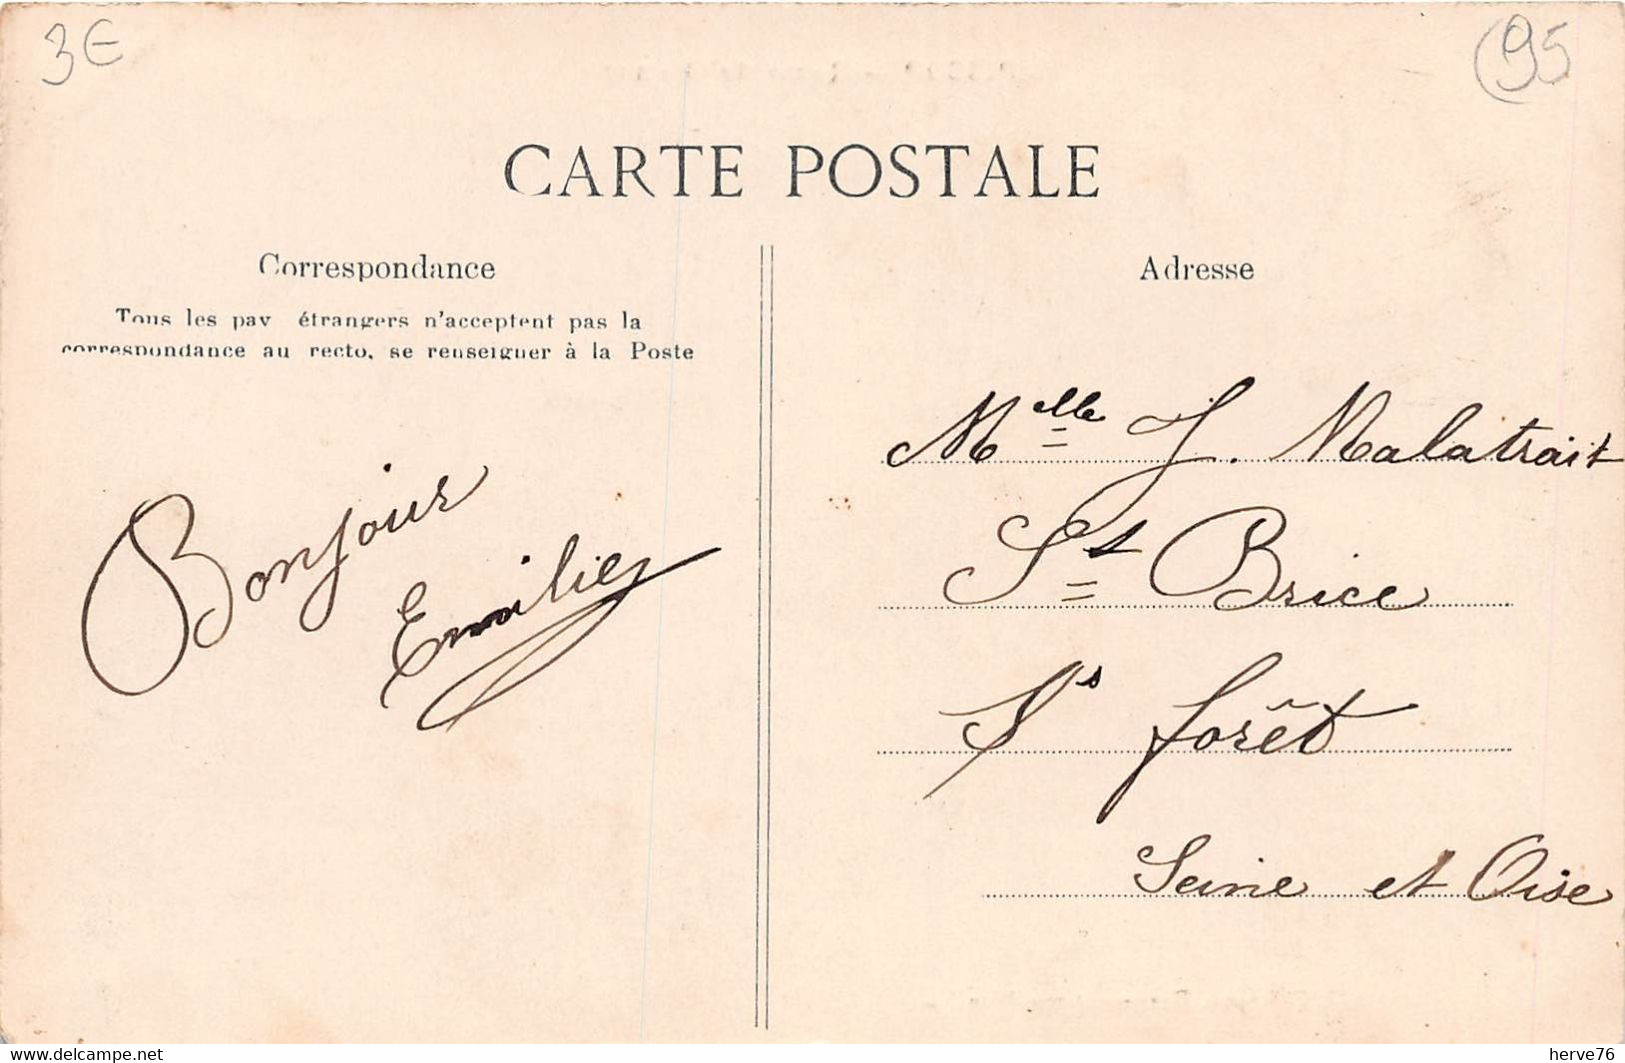 3€
(95
CARTE POSTALE
Correspondance
Tous les pay étrangers n'acceptent pas la
correspondance au recto, se renseigner à la Poste
Adresse
Bonjour
Emilie
Melle J. Malatrait
St Brice
Ss forêt
Seine et Oise
https://www.delcampe.net
herve76